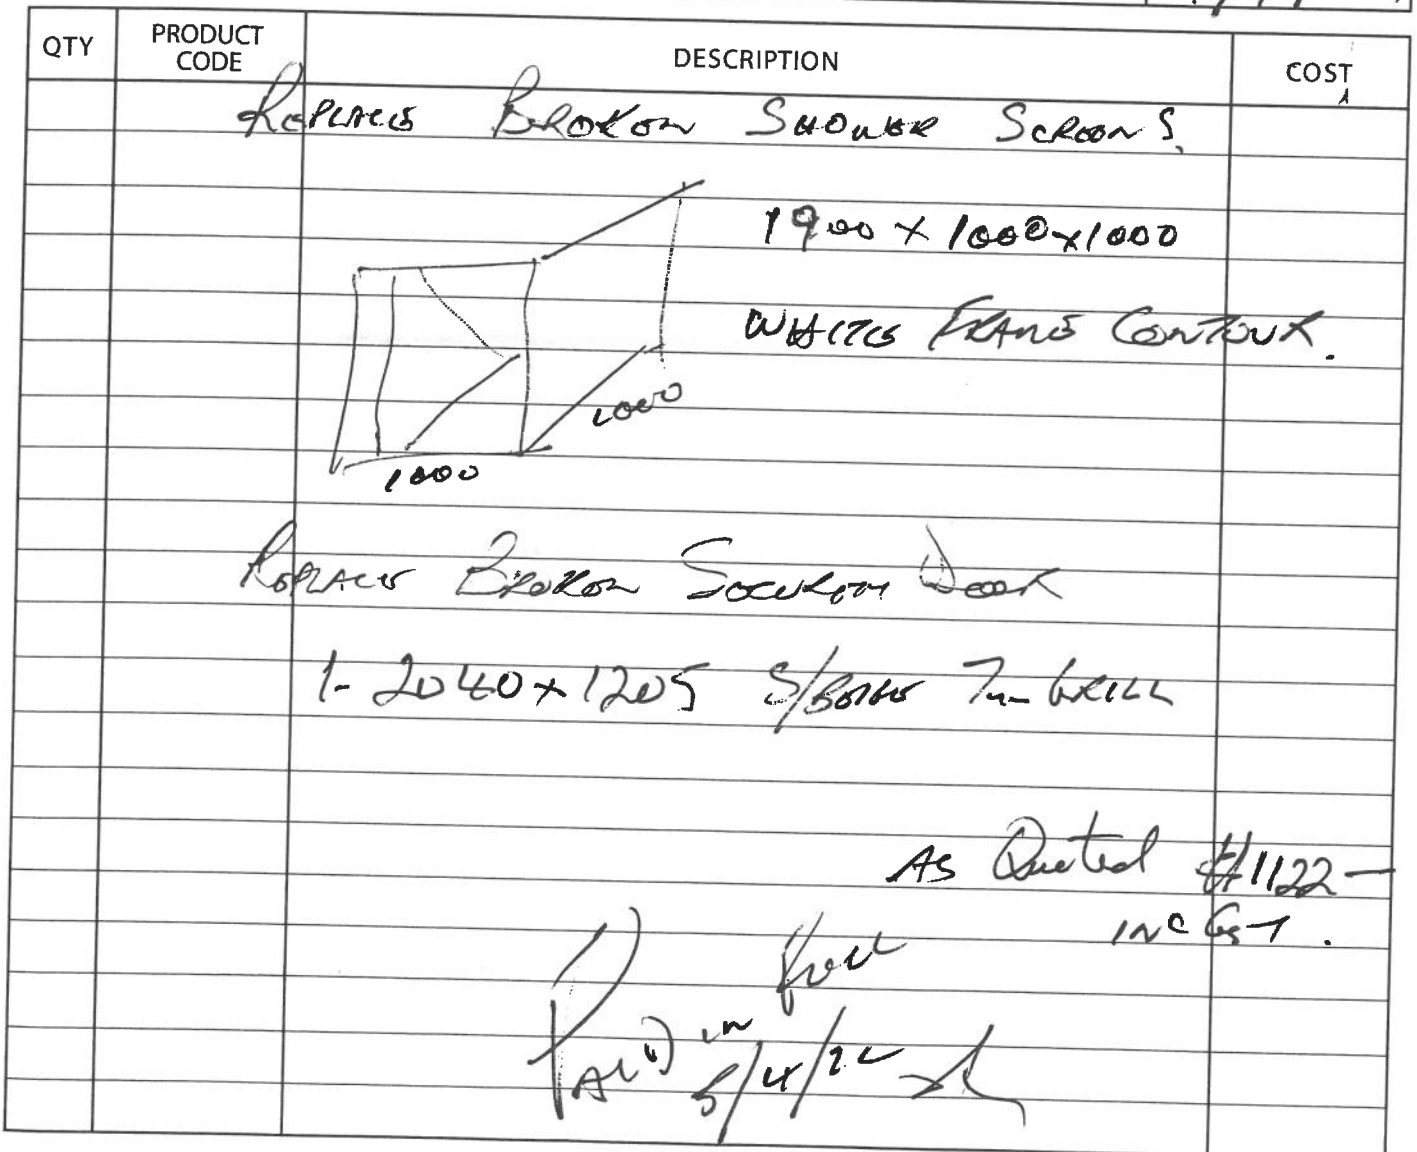 QTY PRODUCT CODE DESCRIPTION COST
REPLACE BROKEN SHOWER SCREENS.
1900 x 1000 x 1000
WHITE FRAME CONTOUR.
1000
1000
REPLACE BROKEN SECURITY DOOR
1- 2040 x 1205 S/BOLT 7mm GRILL
AS Quoted $1122 —
INC GST.
PAID in full
5/4/22